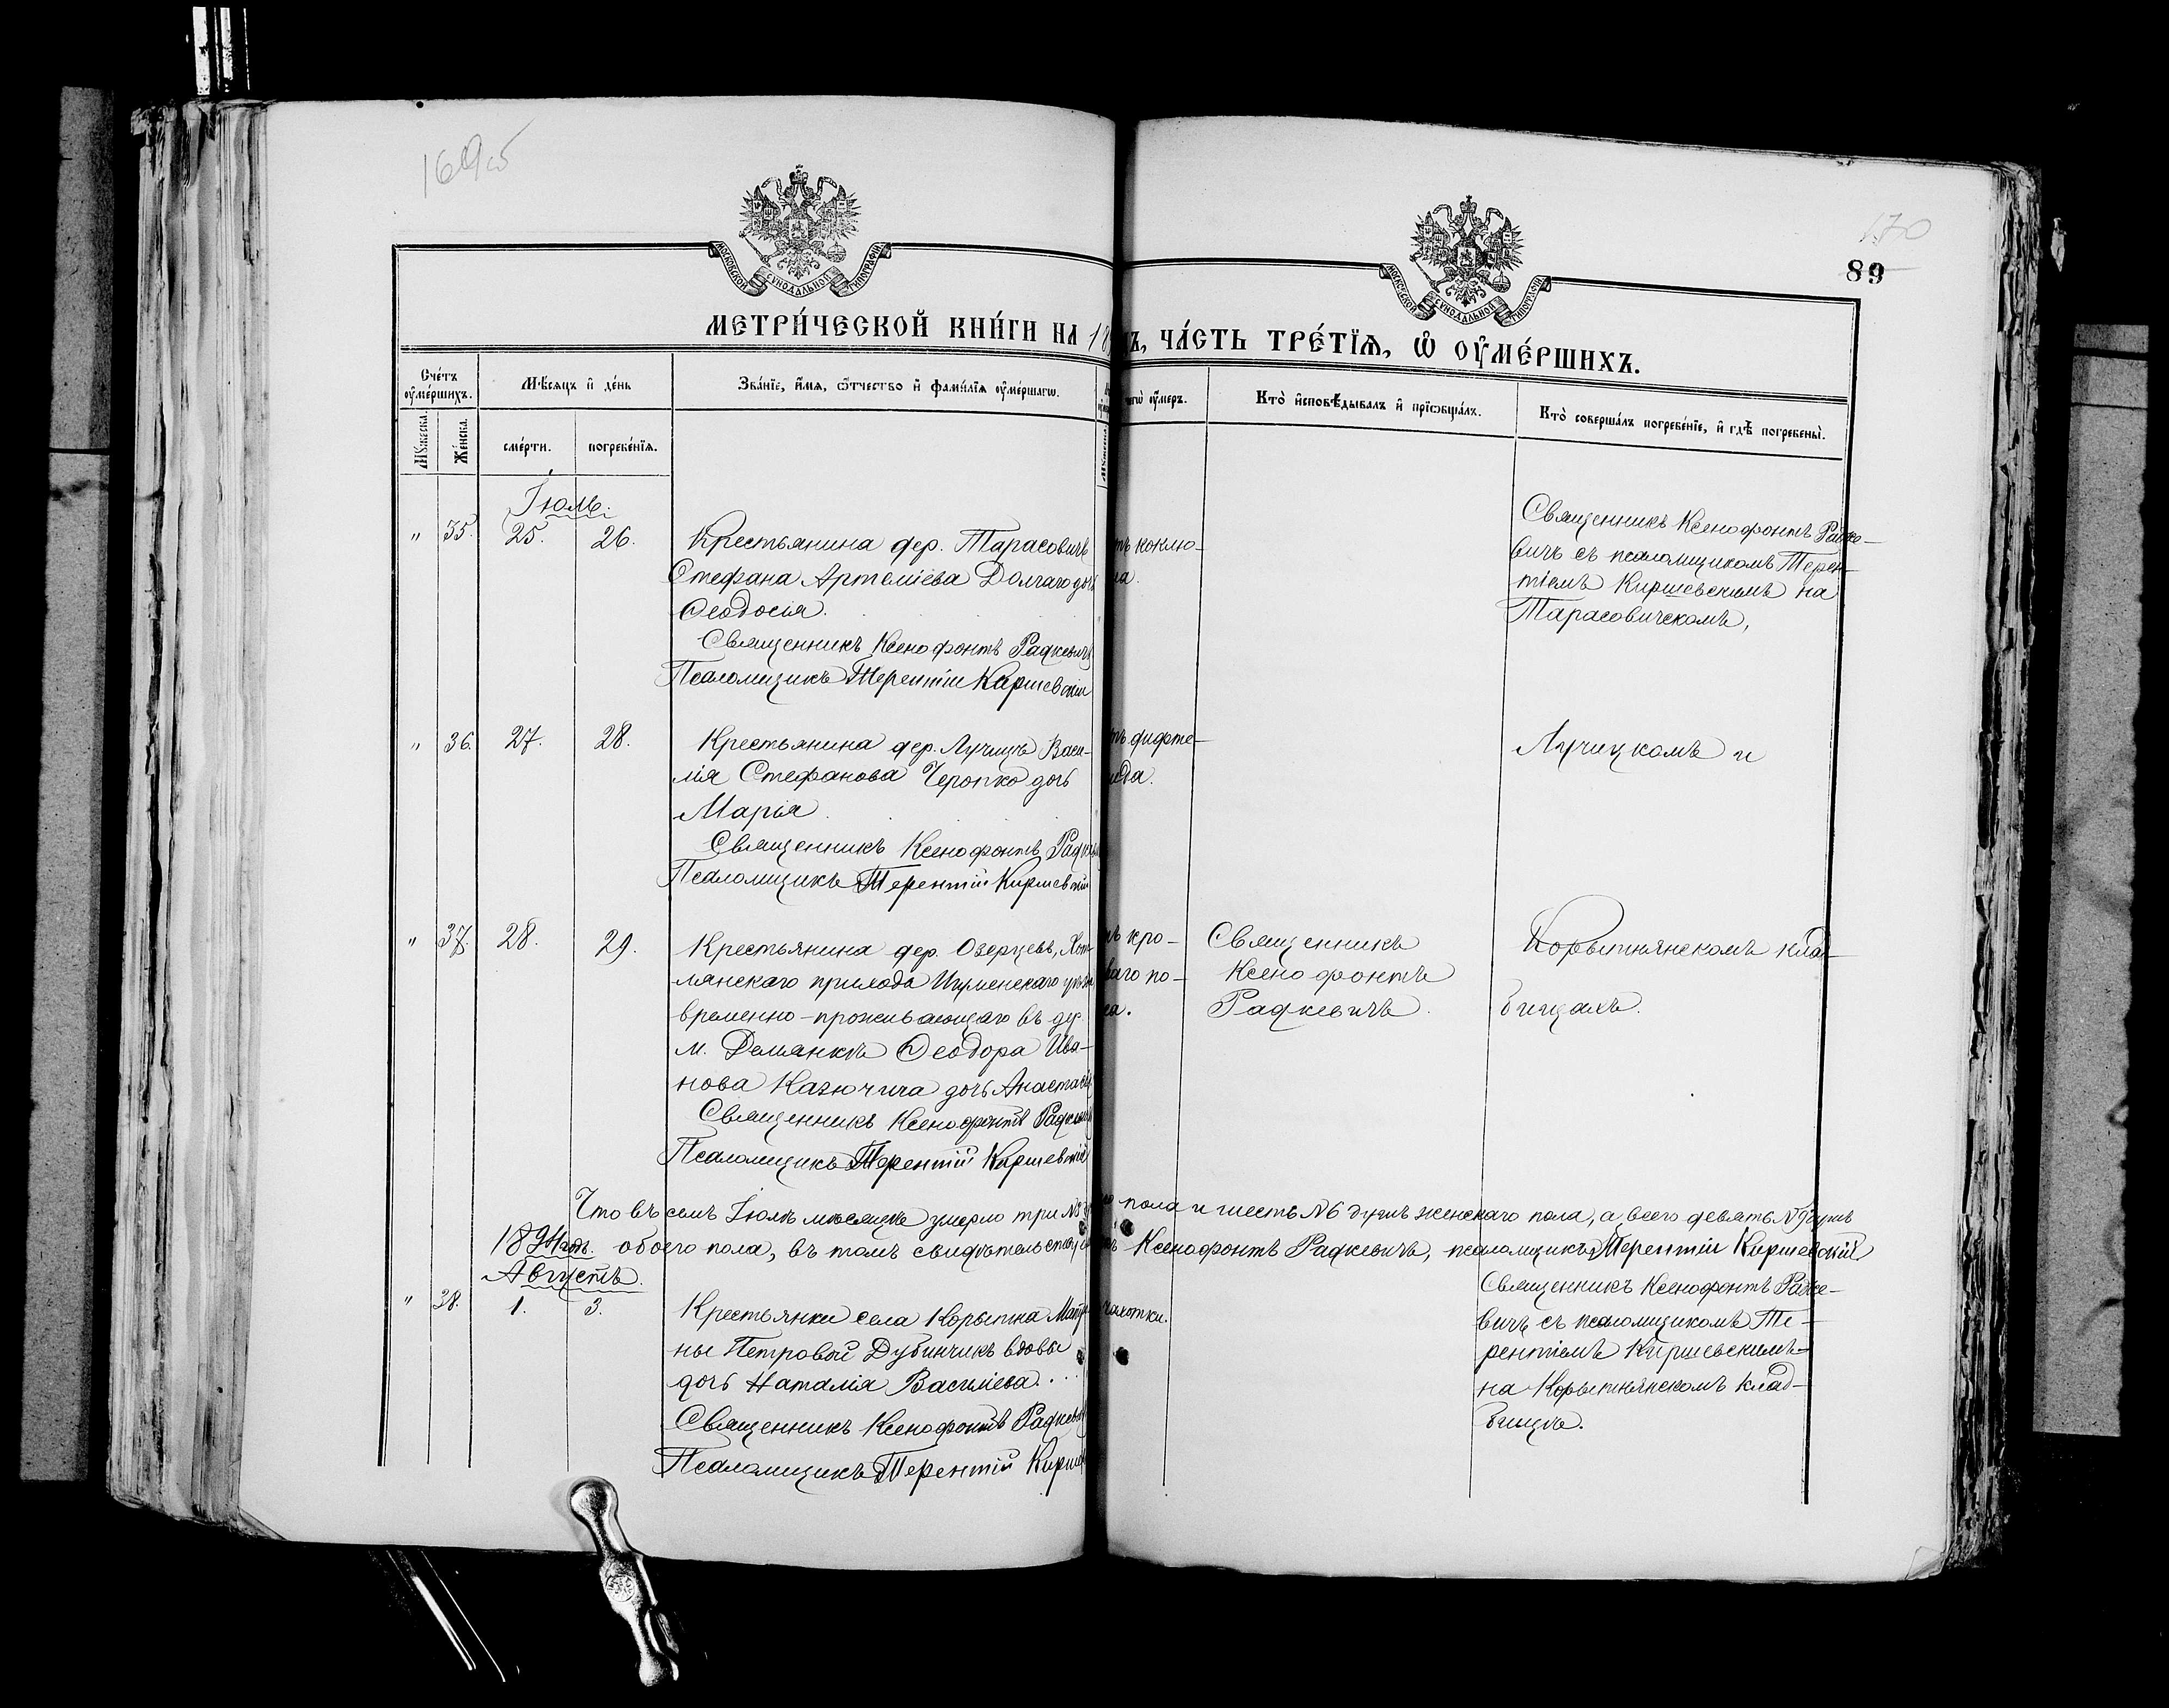 169об
170
89
МОСКОВСКОЙ СѴНОДАЛЬНОЙ ТИПОГРАФІИ
МОСКОВСКОЙ СѴНОДАЛЬНОЙ ТИПОГРАФІИ
МЕТРИ́ЧЕСКОЙ КНИ́ГИ НА 18
ЧА́СТЬ ТРЕ́ТЇѦ, Ѡ҆ ОУ҆МЕ́РШИХЪ.
Сче́тъ оу҆ме́ршихъ.
Мѣ́сяцъ и҆ де́нь
Зва́нїе, и҆́мя, ѻ҆́тчество и҆ фами́лїя оу҆ме́ршагѡ.
чегѡ̀ оу҆́меръ.
Кто̀ и҆сповѣ́дывалъ и҆ прїѡбща́лъ.
Кто̀ соверша́лъ погребе́нїе, и҆ гдѣ̀ погребены̀.
Мꙋжеска.
Же́нска.
сме́рти.
погребе́нїя.
Мꙋжеска.
Іюль.
" 35. 25. 26.
Крестьянина дер. Тарасовичъ
Стефана Артеміева Долгаго дочь
Ѳеодосія.
Священникъ Ксенофонтъ Радкевичъ
Псаломщикъ Терентій Киршевскій
тъ коклю-
ша.
Священникъ Ксенофонтъ Радке-
вичъ съ псаломщикомъ Терен-
тіемъ Киршевскимъ на
Тарасовичскомъ,
" 36. 27. 28.
Крестьянина дер. Лучицъ Васи-
лія Стефанова Черопко дочь
Марія.
Священникъ Ксенофонтъ Радкев
Псаломщикъ Терентій Киршевскій
тъ дифте-
Лучицкомъ и
" 37. 28. 29.
Крестьянина дер. Озерцевъ, Хот-
лянскаго прихода Игуменскаго уѣзда
временно-проживающаго въ де
м. Демянкѣ Ѳеодора Ива-
нова Казючича дочь Анастасія
Священникъ Ксенофонтъ Радкевичъ
Псаломщикъ Терентій Киршевскій
ъ кро-
ваго по-
са.
Священникъ
Ксенофонтъ
Радкевичъ.
Корытнянскомъ клад-
бищахъ.
Что въ семъ Іюлѣ мѣсяцѣ умерло три №3
пола и шесть №6 душъ женскаго пола, а всего девять №9 душъ
1894 годъ. обоего пола, въ томъ свидѣтельству
Ксенофонтъ Радкевичъ, псаломщикъ Терентій Киршевскій
Августъ.
" 38. 1. 3.
Крестьянки села Корытна Матр
ны Петровой Дубинчикъ вдовы
дочь Наталія Василіева.
Священникъ Ксенофонтъ Радкевич
Псаломщикъ Терентій Кирш
чахотки.
Священникъ Ксенофонтъ Радке-
вичъ съ псаломщикомъ Те-
рентіемъ Киршевскимъ
на Корытнянскомъ клад-
бищѣ.